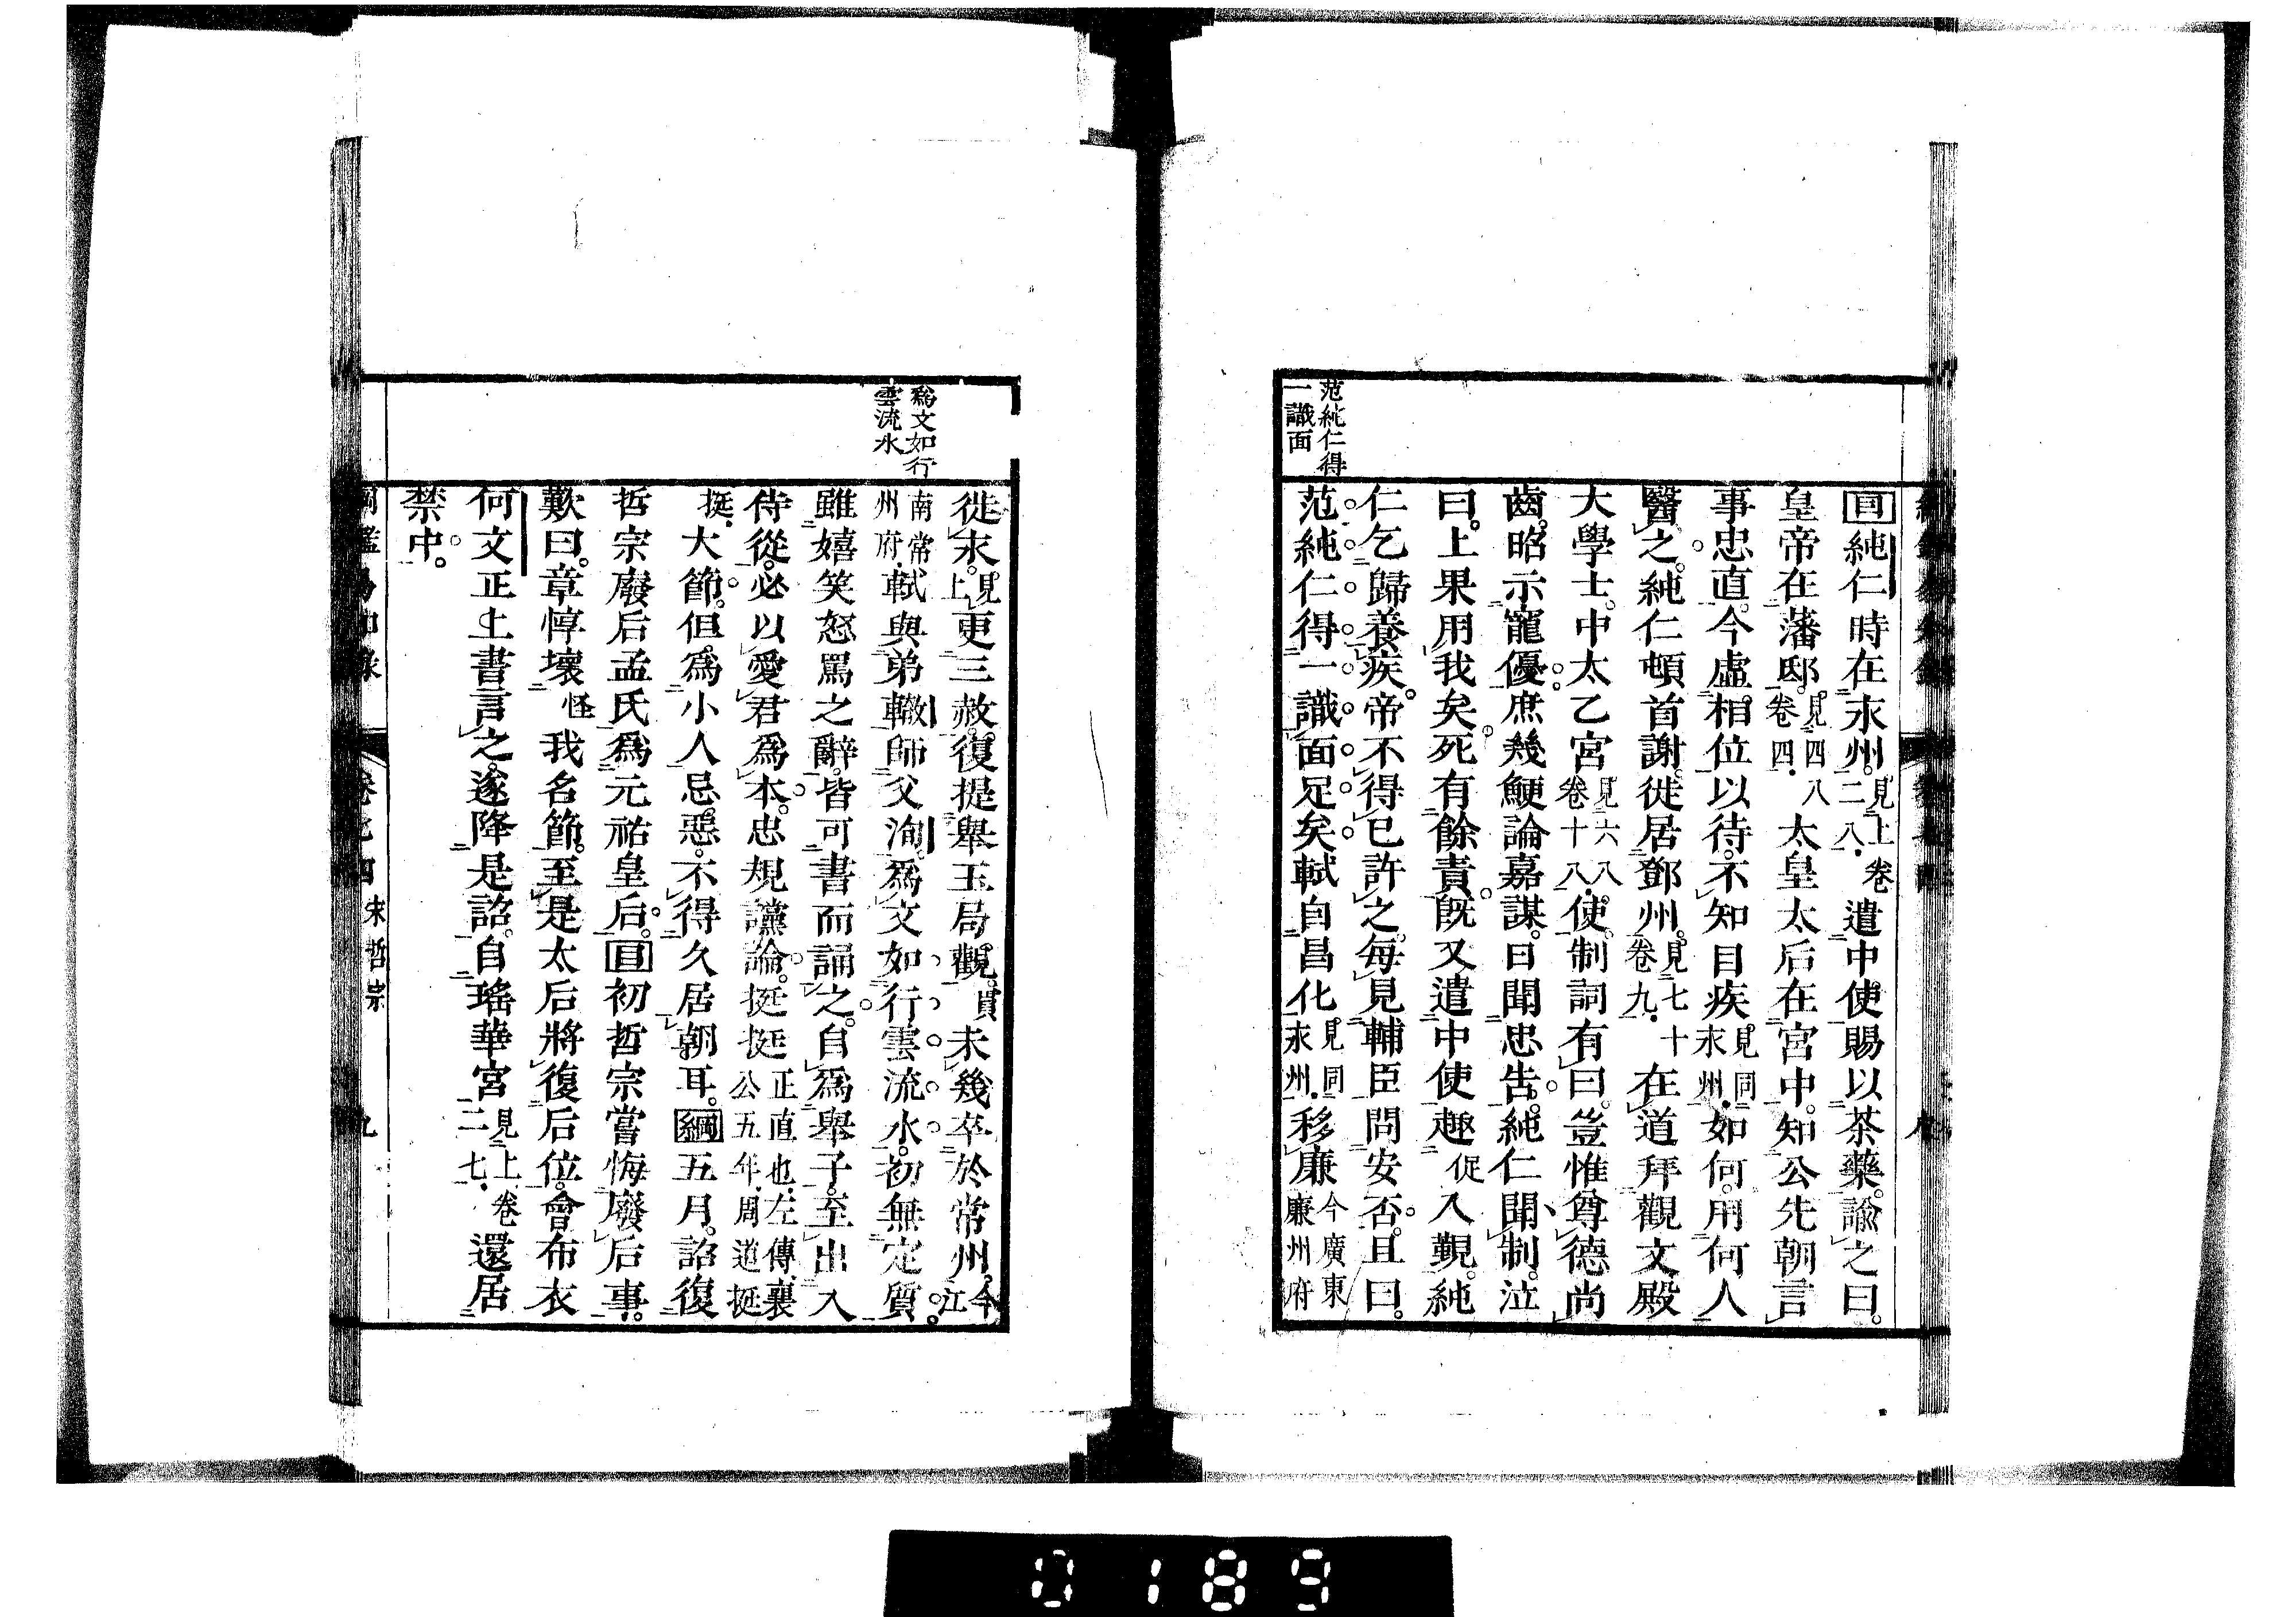 范純仁得
一識面
目純仁時在永州見上卷二八遣中使賜以茶藥諭之曰
皇帝在藩邸見四八卷四太皇太后在宮中知公先朝言
事忠直今虛相位以待不知目疾見同永州如何用何人
醫之純仁頓首謝徙居鄧州見七十卷九在道拜觀文殿
大學士中太乙宮見六八卷十八使制詞有曰豈惟尊德尚
齒昭示寵優庶幾鯁論嘉謀日聞忠告純仁聞制泣
曰上果用我矣死有餘責既又遣中使趣促入覲純
仁乞歸養疾帝不得已許之每見輔臣問安否且曰
范純仁得一識面足矣軾自昌化見同永州移廉今廣東廉州府
爲文如行
雲流水
徙永見上更三赦復提舉玉局觀貫未幾卒於常州今江
南常州府軾與弟轍師父洵爲文如行雲流水初無定質
雖嬉笑怒罵之辭皆可書而誦之自爲舉子至出入
侍從必以愛君爲本忠規讜論挺挺正直也左傳襄公五年周道挺
挺大節但爲小人忌惡不得久居朝耳綱五月詔復
哲宗廢后孟氏爲元祐皇后目初哲宗嘗悔廢后事
歎曰章惇壞怪我名節至是太后將復后位會布衣
何文正上書言之遂降是詔自瑤華宮見上卷二七還居
禁中
宋哲宗
九
0189